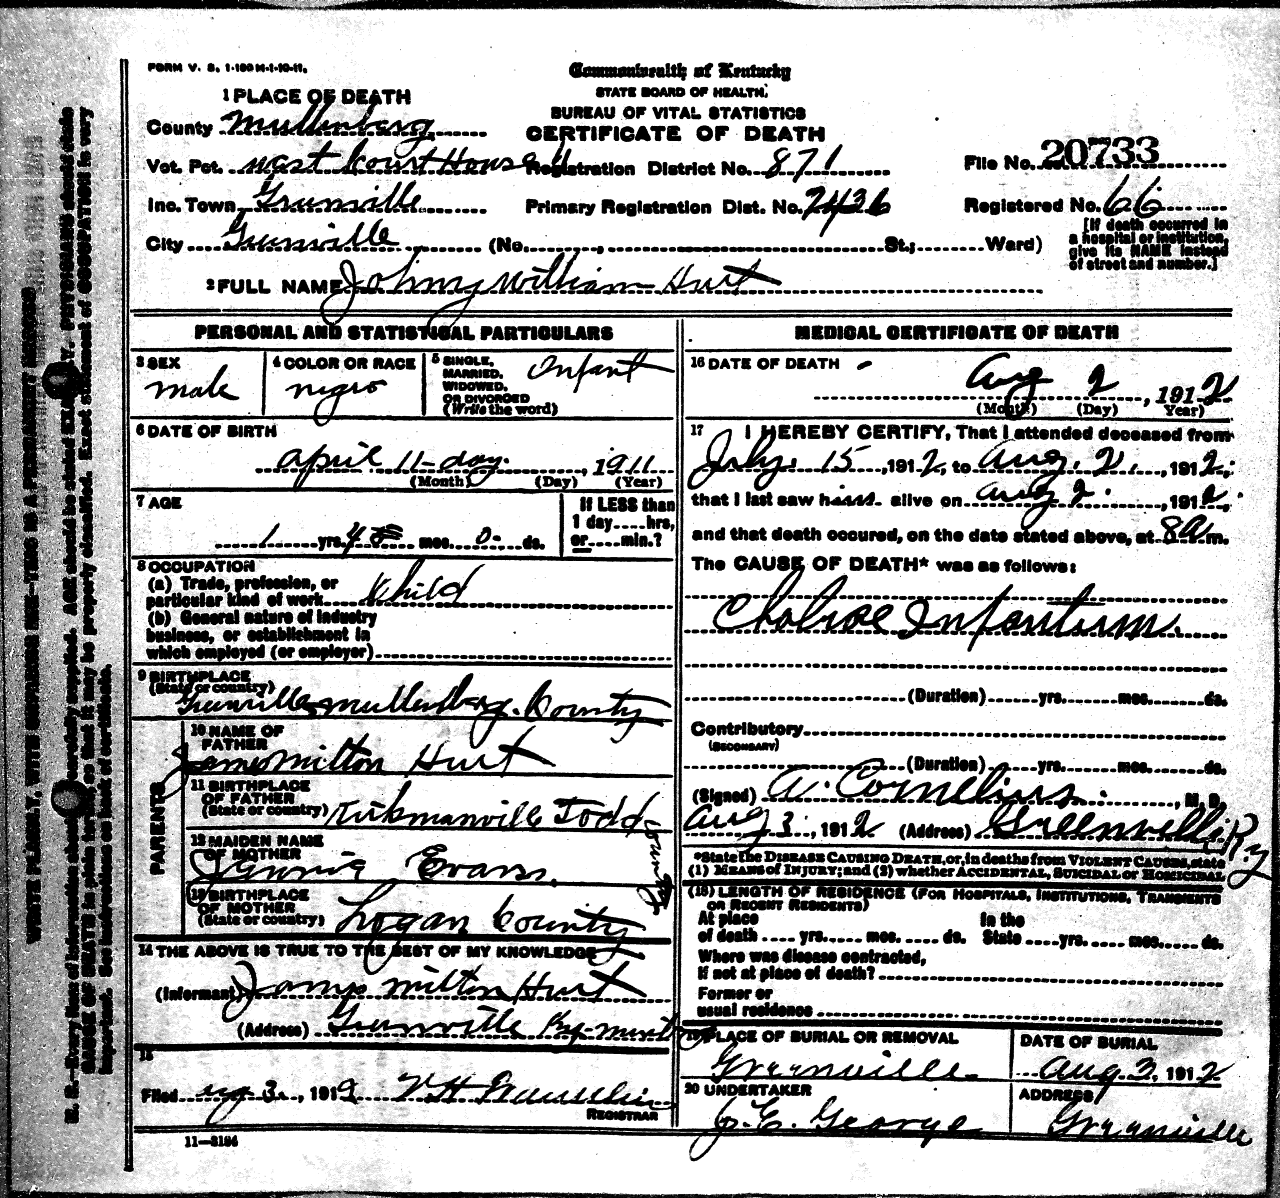 FORM V. S. 1-100 M-1-10-11.
Commonwealth of Kentucky
STATE BOARD OF HEALTH.
BUREAU OF VITAL STATISTICS
CERTIFICATE OF DEATH
1 PLACE OF DEATH
County Mullenberg
Vot. Pct. west Court House Registration District No. 871 File No. 20733
Inc. Town Grunville Primary Registration Dist. No. 7436 Registered No. 66
City Grunville (No. St.; Ward)
[If death occurred in
a hospital or institution,
give its NAME instead
of street and number.]
2 FULL NAME Johny William Hurt
PERSONAL AND STATISTICAL PARTICULARS
3 SEX
male
4 COLOR OR RACE
nigro
5 SINGLE,
MARRIED,
WIDOWED,
OR DIVORCED
(Write the word)
Infant
6 DATE OF BIRTH
April 11-day. , 1911
(Month) (Day) (Year)
7 AGE
1 yrs. 4 mos. 0- ds.
If LESS than
1 day....hrs,
or....min.?
8 OCCUPATION
(a) Trade, profession, or
particular kind of work Khild
(b) General nature of industry
business, or establishment in
which employed (or employer)
9 BIRTHPLACE
(State or country)
Grunville Mullenberg County
PARENTS
10 NAME OF
FATHER
James Milton Hurt
11 BIRTHPLACE
OF FATHER
(State or country) Kirkmanville Todd County
12 MAIDEN NAME
OF MOTHER
Jennie Evans
13 BIRTHPLACE
OF MOTHER
(State or country) Logan County
14 THE ABOVE IS TRUE TO THE BEST OF MY KNOWLEDGE
(Informant) James Milton Hurt
(Address) Grunville Ky
15
Filed Aug 3, 1912
REGISTRAR
11—3184
MEDICAL CERTIFICATE OF DEATH
16 DATE OF DEATH
Aug 2 , 1912
(Month) (Day) Year)
17 I HEREBY CERTIFY, That I attended deceased from
July 15, 1912, to Aug. 2, 1912,
that I last saw him alive on Aug 2, 1912,
and that death occured, on the date stated above, at 8 a m.
The CAUSE OF DEATH* was as follows:
Cholrae Infantum.
(Duration) yrs. mos. ds.
Contributory
(SECONDARY)
(Duration) yrs. mos. ds.
(Signed) A. Cornelius , M. D.
Aug 3, 1912 (Address) Greenville Ky
*State the DISEASE CAUSING DEATH, or, in deaths from VIOLENT CAUSES, state
(1) MEANS OF INJURY; and (2) whether ACCIDENTAL, SUICIDAL or HOMICIDAL
(18) LENGTH OF RESIDENCE (FOR HOSPITALS, INSTITUTIONS, TRANSIENTS
OR RECENT RESIDENTS)
At place In the
of death .... yrs. .... mos. .... ds. State .... yrs. .... mos. .... ds.
Where was disease contracted,
If not at place of death?
Former or
usual residence
19 PLACE OF BURIAL OR REMOVAL
Greenville
DATE OF BURIAL
Aug 3, 1912
20 UNDERTAKER
J. E. George
ADDRESS
Greenville
WRITE PLAINLY, WITH UNFADING INK—THIS IS A PERMANENT RECORD
N. B.—Every item of information should be carefully supplied. AGE should be stated EXACTLY. PHYSICIANS should state
CAUSE OF DEATH in plain terms, so that it may be properly classified. Exact statement of OCCUPATION is very
important. See instructions on back of certificate.